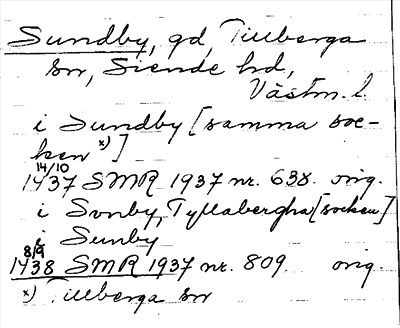 Sundby, gd, Tillberga
sn, Siende hd,
Västm. l.
i Sundby [samma soc-
ken x)]
14/10
1437 SMR 1937 nr. 638. orig.
i Sonby, Tyllabergha [socken]
i Sunby
8/9
1438 SMR 1937 nr. 809. orig.
x) Tillberga sn